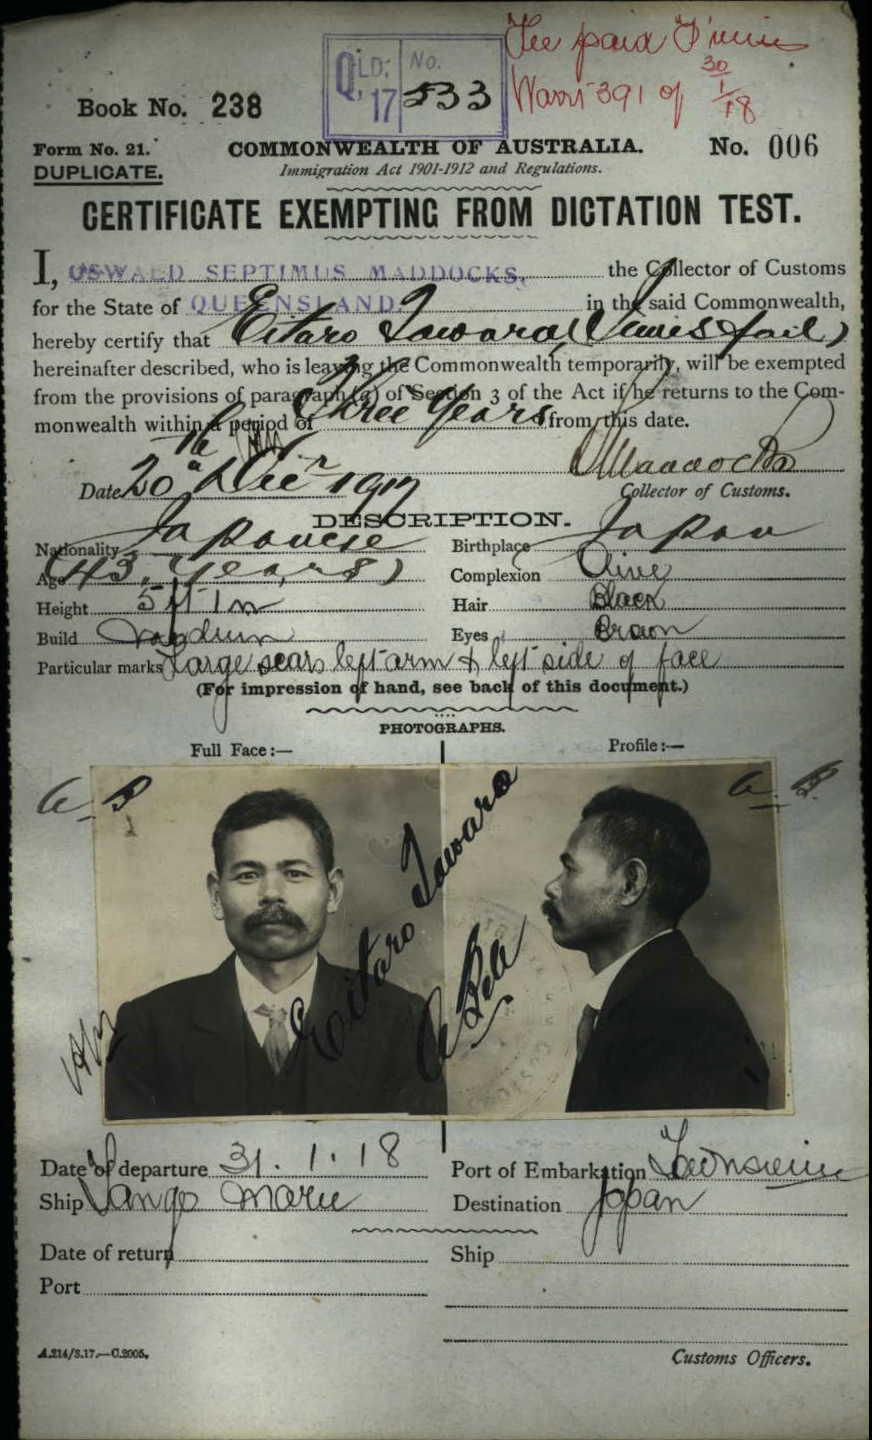 Fee paid
QLD; No.
17 533
391 of 30/1/18
Book No. 238
Form No. 21. COMMONWEALTH OF AUSTRALIA. No. 006
DUPLICATE. Immigration Act 1901-1912 and Regulations.
CERTIFICATE EXEMPTING FROM DICTATION TEST.
I, OSWALD SEPTIMUS MADDOCKS, the Collector of Customs
for the State of QUEENSLAND. in the said Commonwealth,
hereby certify that Eitaro Tawara (Innisfail)
hereinafter described, who is leaving the Commonwealth temporarily, will be exempted
from the provisions of paragraph (a) of Section 3 of the Act if he returns to the Com-
monwealth within a period of Three Years from this date.
Date 20th Decr 1917 OMaddocks
Collector of Customs.
DESCRIPTION.
Nationality Japanese Birthplace Japan
Age (43 years) Complexion Olive
Height 5 ft 1 in Hair Black
Build Medium Eyes Brown
Particular marks Large scars left arm & left side of face
(For impression of hand, see back of this document.)
PHOTOGRAPHS.
Full Face:— Profile:—
Eitaro Tawara
Date of departure 31.1.18 Port of Embarkation Townsville
Ship Tango Maru Destination Japan
Date of return Ship
Port
A.214/3.17.—C.2005. Customs Officers.